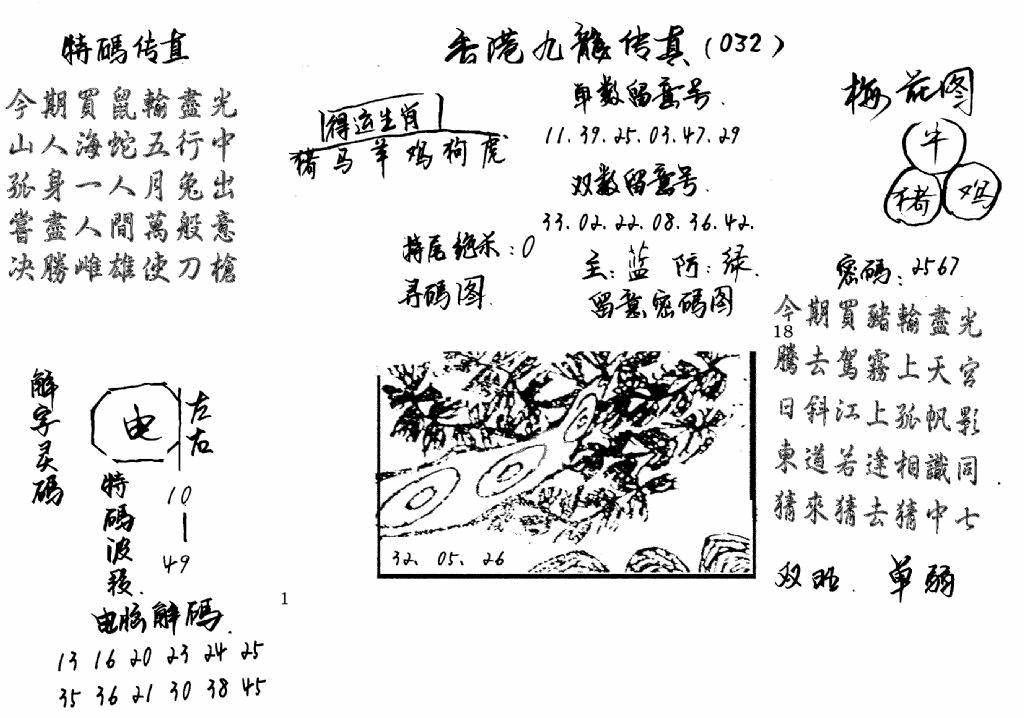 香港九龍传真(032)
特碼传真
今期買鼠輪盡光
山人海蛇五行中
孤身一人月兔出
嘗盡人間萬般意
决勝雌雄使刀槍
得运生肖
猪马羊鸡狗虎
单数留意号.
11.39.25.03.47.29
双数留意号.
33.02.22.08.36.42.
特尾绝杀:0
主:蓝 防:绿.
寻码图.
留意密码图
梅花图
牛
猪 鸡
密碼:2567
今期買豬輪盡光
18
騰去駕霧上天宮
日斜江上孤帆影
東道若逢相識同
猜來猜去猜中七
双旺. 单弱
解字灵碼
电
左右
特碼波段.
10
49
32. 05. 26
1
电脑解碼.
13 16 20 23 24 25
35 36 21 30 38 45